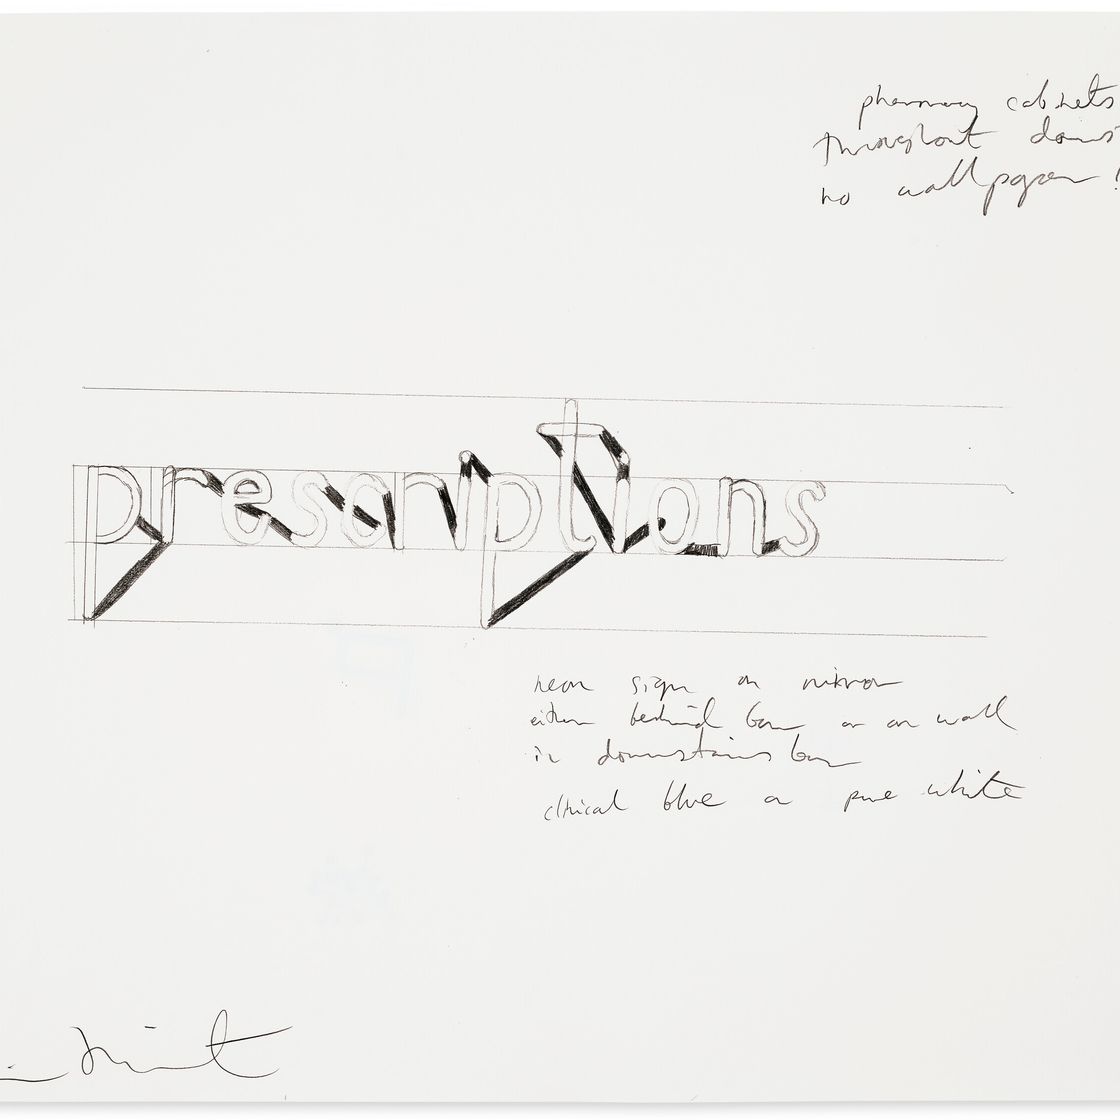 pharmacy cabinets
throughout downs
no wallpaper!
prescriptions
neon sign on mirror
either behind bar or on wall
in downstairs bar
clinical blue or pure white
Hirst